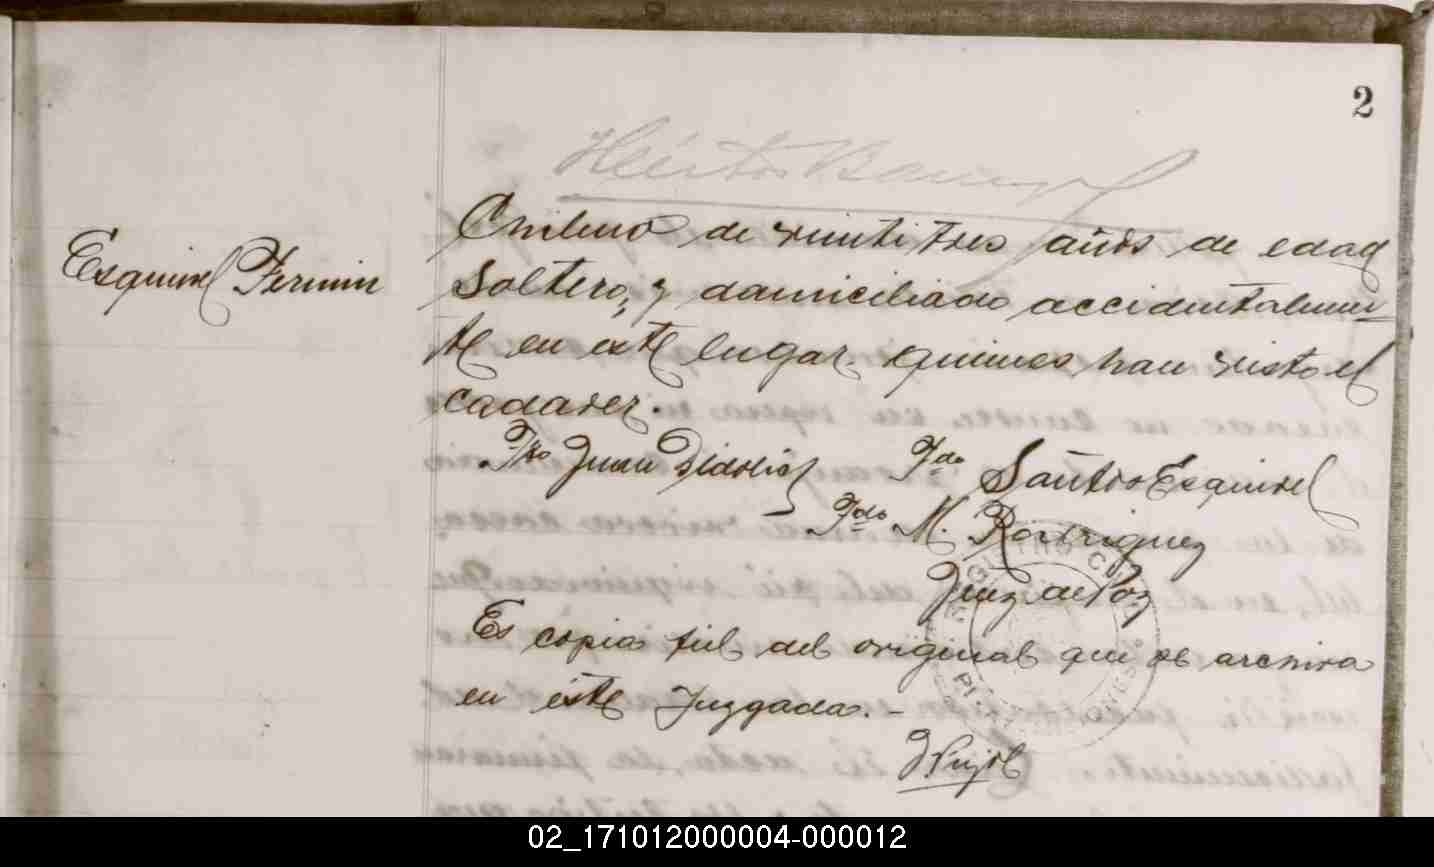 2
Héctor
Esquivel Fermin
Chileno de veintitres años de edad
Soltero, y domiciliado accidentalmen-
te en este lugar. quienes han visto el
cadaver.
Fdo Juan Fdo Santos Esquivel
Fdo M. Rodriguez
Juez de Paz
Es copia fiel del original que se archiva
en éste Juzgado. -
REGISTRO CIVIL
02_171012000004-000012